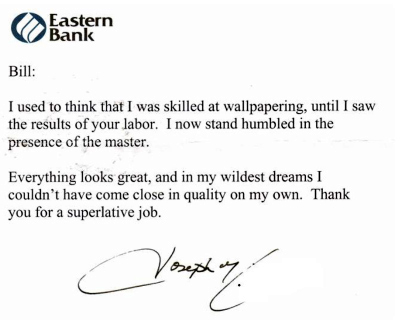 Eastern
Bank
Bill:
I used to think that I was skilled at wallpapering, until I saw
the results of your labor.  I now stand humbled in the
presence of the master.
Everything looks great, and in my wildest dreams I
couldn't have come close in quality on my own.  Thank
you for a superlative job.
Joseph